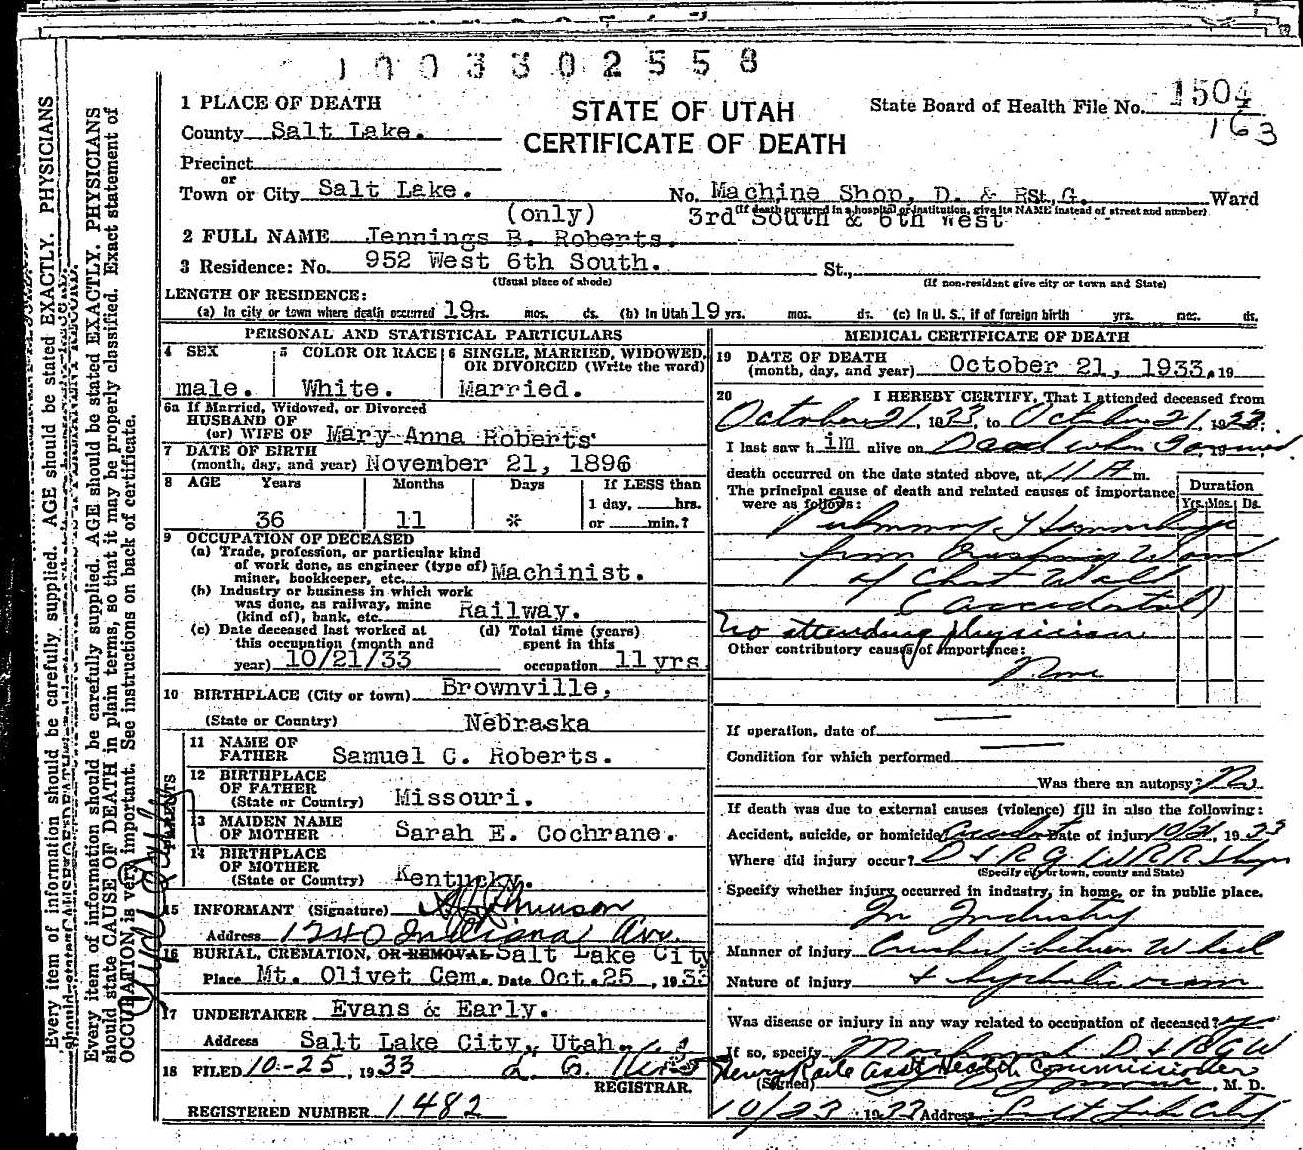 1003302558
1 PLACE OF DEATH
STATE OF UTAH
CERTIFICATE OF DEATH
State Board of Health File No. 1504
163
County Salt Lake.
Precinct
or
Town or City Salt Lake. No. Machine Shop, D. & R. G. St., Ward
(If death occurred in a hospital or institution, give its NAME instead of street and number)
(only) 3rd South & 6th West
2 FULL NAME Jennings B. Roberts.
3 Residence: No. 952 West 6th South. St.,
(Usual place of abode) (If non-resident give city or town and State)
LENGTH OF RESIDENCE:
(a) In city or town where death occurred 19 yrs. mos. ds. (b) In Utah 19 yrs. mos. ds. (c) In U. S., if of foreign birth yrs. mos. ds.
PERSONAL AND STATISTICAL PARTICULARS
4 SEX 5 COLOR OR RACE 6 SINGLE, MARRIED, WIDOWED, OR DIVORCED (Write the word)
male. White. Married.
6a If Married, Widowed, or Divorced
HUSBAND OF
(or) WIFE OF Mary Anna Roberts
7 DATE OF BIRTH
(month, day, and year) November 21, 1896
8 AGE Years Months Days If LESS than
1 day, hrs.
36 11 * or min.?
9 OCCUPATION OF DECEASED
(a) Trade, profession, or particular kind
of work done, as engineer (type of)
miner, bookkeeper, etc. Machinist.
(b) Industry or business in which work
was done, as railway, mine
(kind of), bank, etc. Railway.
(c) Date deceased last worked at
this occupation (month and
year) 10/21/33
(d) Total time (years)
spent in this
occupation 11 yrs
10 BIRTHPLACE (City or town) Brownville,
(State or Country) Nebraska
PARENTS
11 NAME OF
FATHER Samuel C. Roberts.
12 BIRTHPLACE
OF FATHER
(State or Country) Missouri.
13 MAIDEN NAME
OF MOTHER Sarah E. Cochrane.
14 BIRTHPLACE
OF MOTHER
(State or Country) Kentucky.
15 INFORMANT (Signature)
Address 1240 Indiana Ave.
16 BURIAL, CREMATION, OR REMOVAL Salt Lake City
Place Mt. Olivet Cem. Date Oct. 25, 1933
17 UNDERTAKER Evans & Early.
Address Salt Lake City, Utah.
18 FILED 10-25, 1933
REGISTRAR.
REGISTERED NUMBER 1482
MEDICAL CERTIFICATE OF DEATH
19 DATE OF DEATH
(month, day, and year) October 21, 1933. 19
20 I HEREBY CERTIFY, That I attended deceased from
October 21, 1933, to October 21, 1933.
I last saw him alive on Dead when 19
death occurred on the date stated above, at 11 A m.
The principal cause of death and related causes of importance
were as follows:
Duration
Yrs. Mos. Ds.
Pulmonary Hemorrhage
from Crushing Wound
of Chest Wall
(Accidental)
No attending physician
Other contributory causes of importance:
None
If operation, date of
Condition for which performed
Was there an autopsy? No
If death was due to external causes (violence) fill in also the following:
Accident, suicide, or homicide? Accident Date of injury 10/21, 1933
Where did injury occur? D & R G W R R Shops
(Specify city or town, county and State)
Specify whether injury occurred in industry, in home, or in public place.
In Industry
Manner of injury Crushed between Wheel
Nature of injury &
Was disease or injury in any way related to occupation of deceased?
If so, specify D & R G W
Asst Health Commissioner
(Signed) M. D.
10/23 1933 Address Salt Lake City
Every item of information should be carefully supplied. AGE should be stated EXACTLY. PHYSICIANS
Every item of information should be carefully supplied. AGE should be stated EXACTLY. PHYSICIANS
should state CAUSE OF DEATH in plain terms, so that it may be properly classified. Exact statement of
OCCUPATION is very important. See instructions on back of certificate.